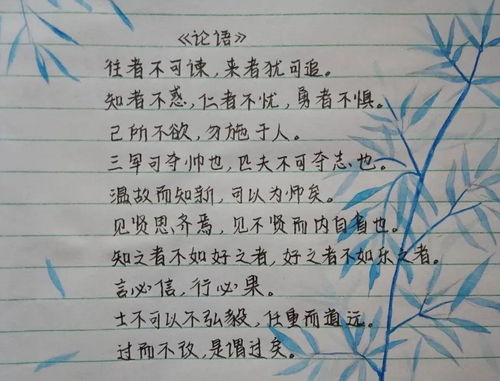 《论语》
往者不可谏，来者犹可追。
知者不惑，仁者不忧，勇者不惧。
己所不欲，勿施于人。
三军可夺帅也，匹夫不可夺志也。
温故而知新，可以为师矣。
见贤思齐焉，见不贤而内自省也。
知之者不如好之者，好之者不如乐之者。
言必信，行必果。
士不可以不弘毅，任重而道远。
过而不改，是谓过矣。